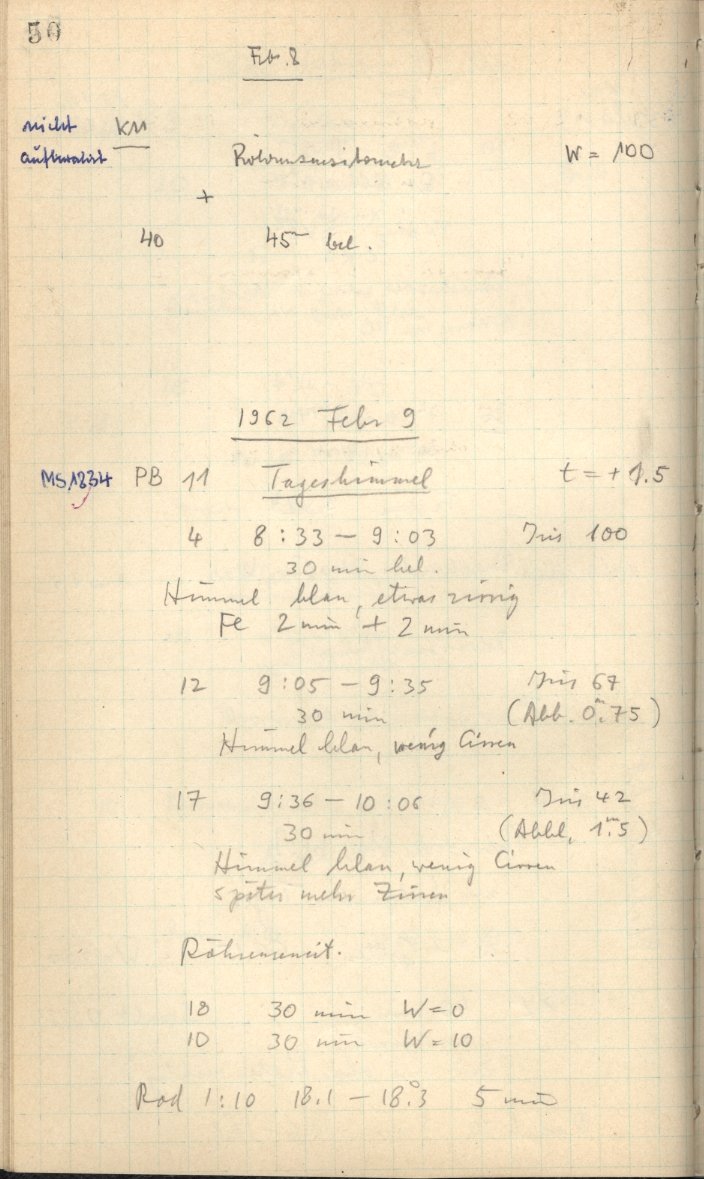 50
Febr. 8
nicht KM
aufbewahrt Röhrensensitometer W = 100
+
40 45 bel.
1962 Febr 9
MS 1334 PB 11 Tageshimmel t = + 1.5
4 8:33 – 9:03 Iris 100
30 min bel.
Himmel blau, etwas zirrig
Fe 2 min + 2 min
12 9:05 – 9:35 Iris 67
30 min (Abb. 0.ᵐ75)
Himmel blau, wenig Cirren
17 9:36 – 10:06 Iris 42
30 min (Abbl. 1.ᵐ5)
Himmel blau, wenig Cirren
später mehr Zirren
Röhrensensit.
18 30 min W=0
10 30 min W=10
Rod 1:10 18.1 – 18.°3 5 min